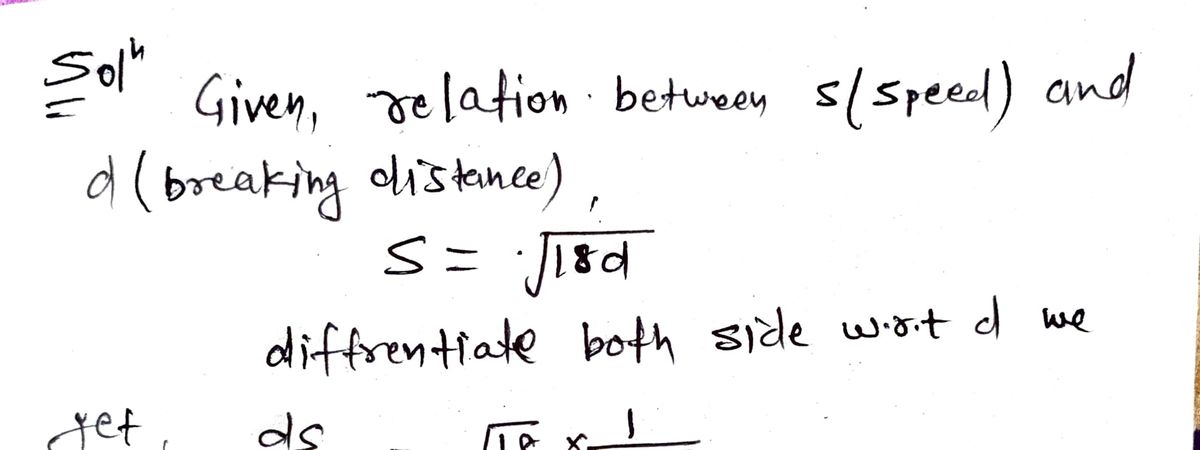 Solⁿ Given, relation between s(speed) and
d (breaking distance),
S = √18d
diffrentiate both side w.r.t d we
get, ds